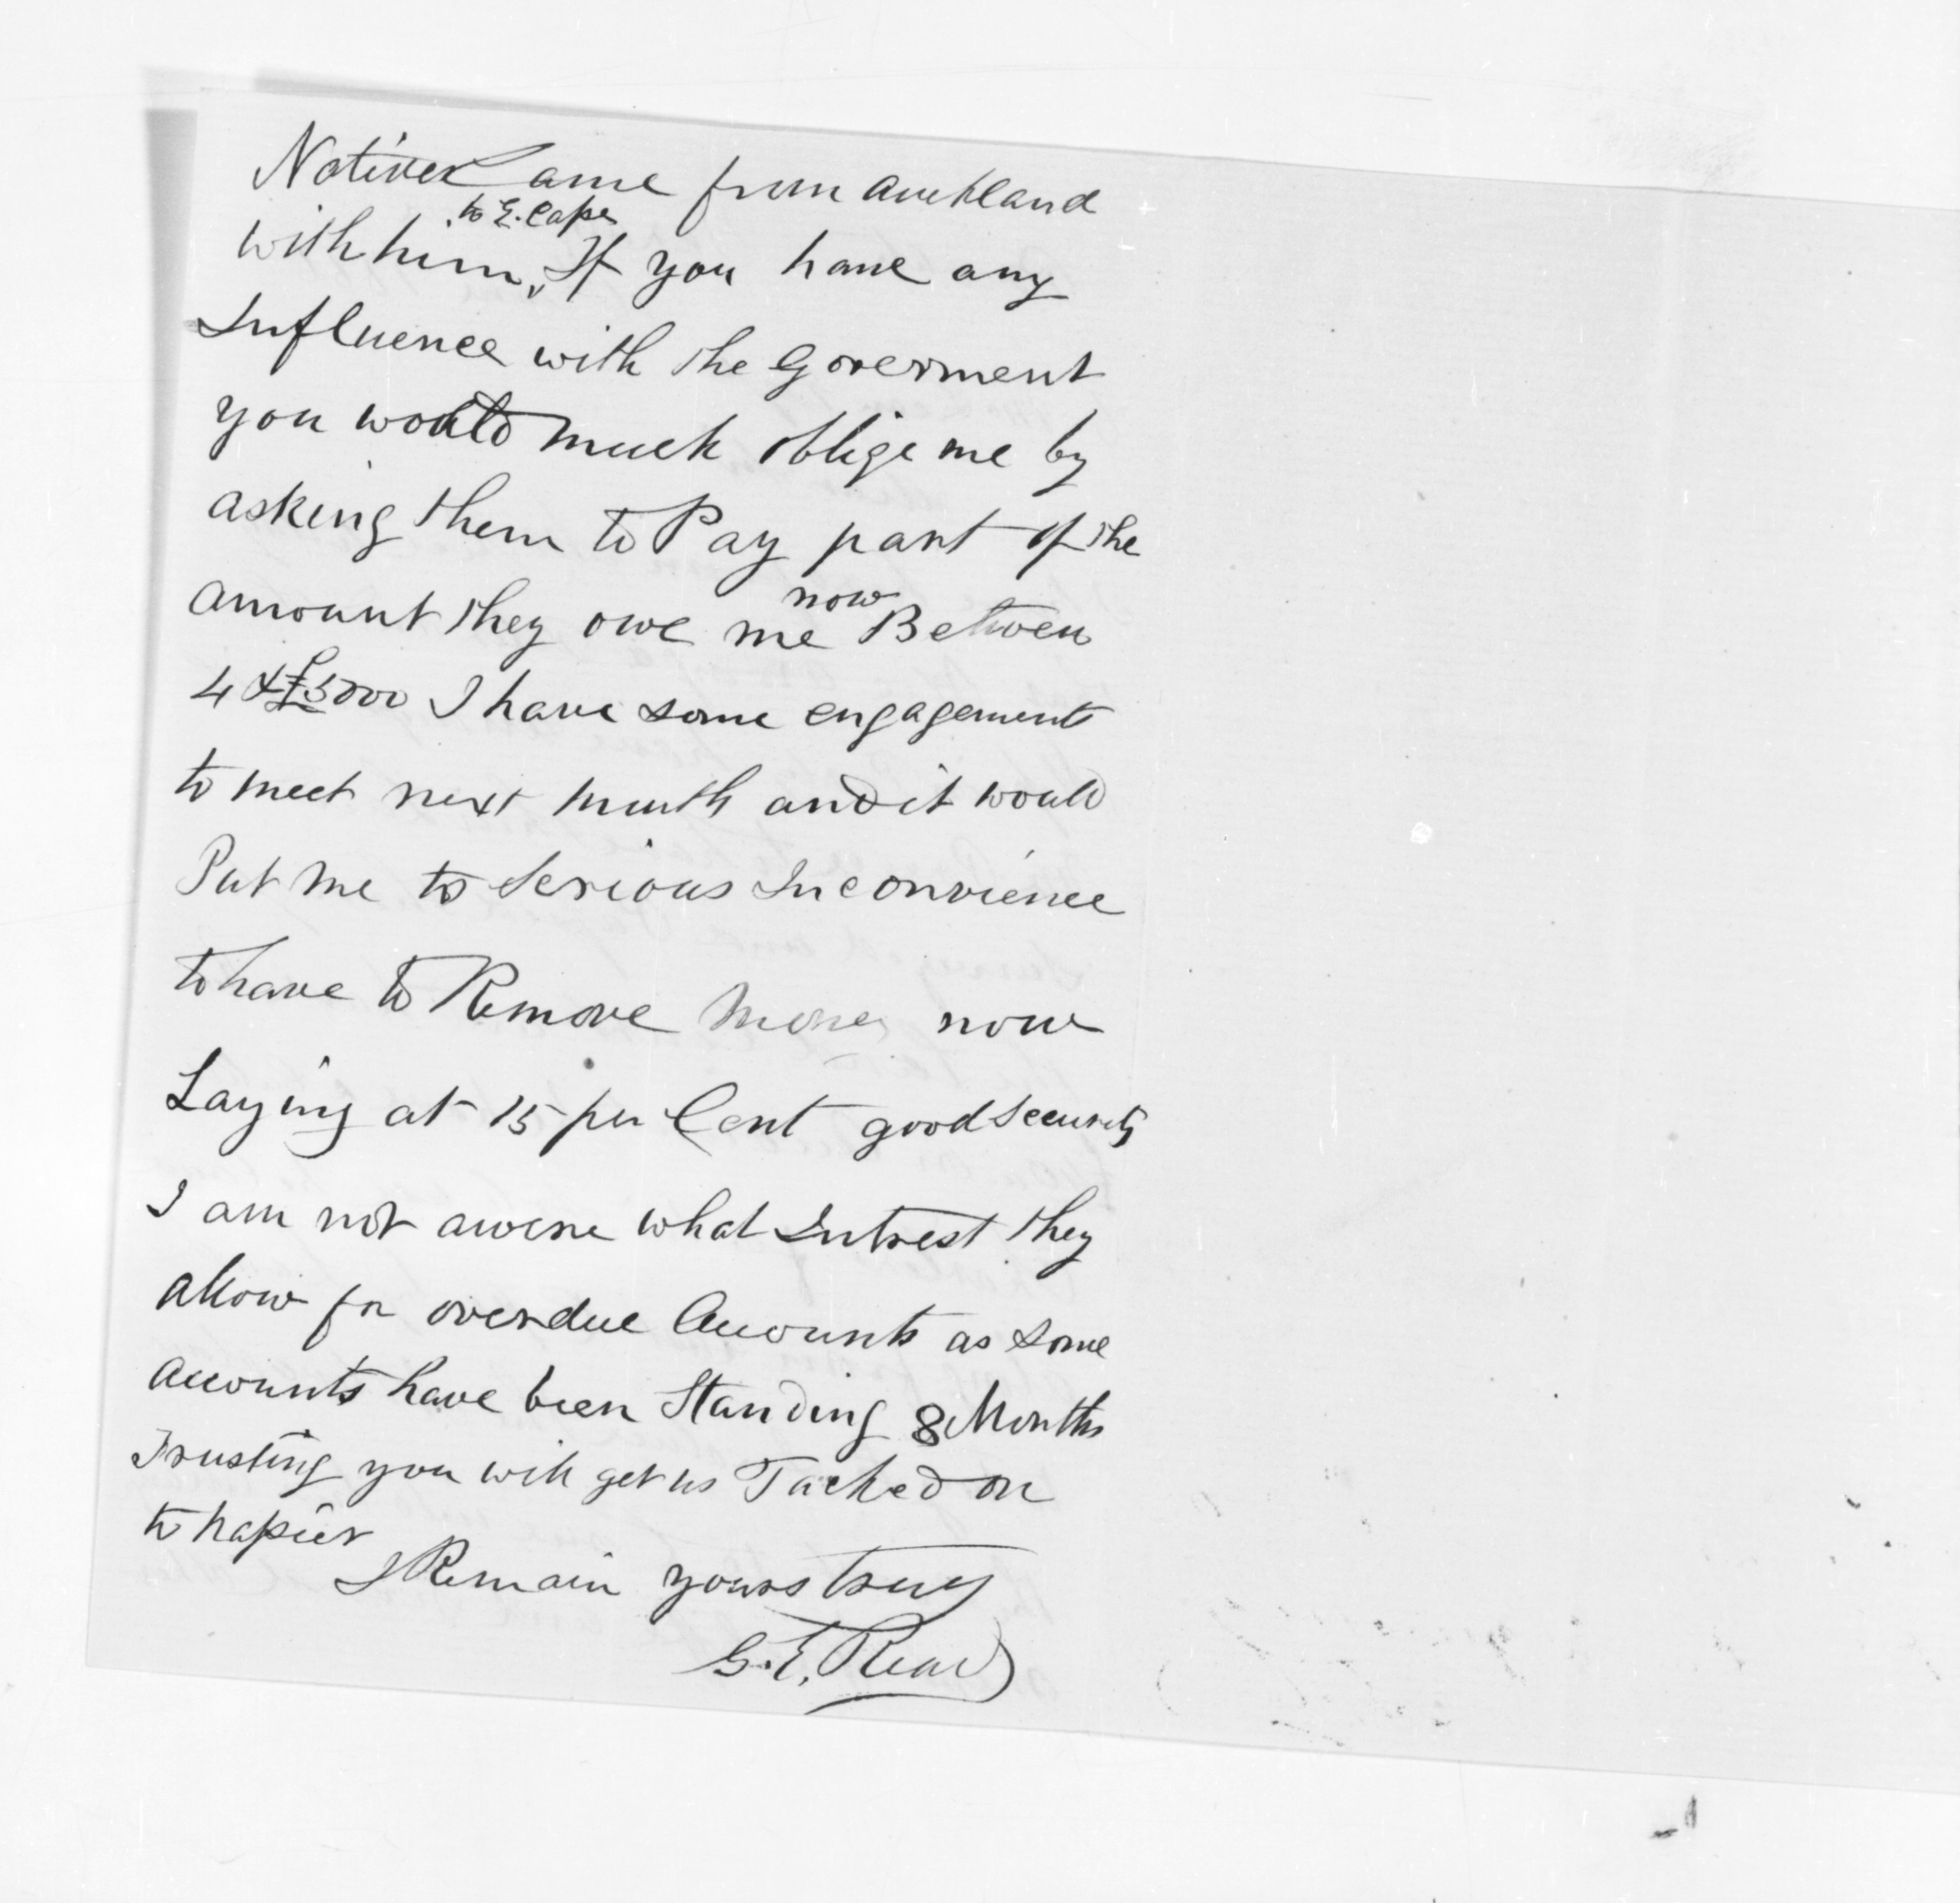 Natives Came from Auckland
to E. Cape
with him, If you have any
Influence with the Goverment
you would much oblige me by
asking them to Pay part of the
amount they owe me now Between
4 & £5000 I have some engagements
to meet next month and it would
Put me to Serious Inconvience
to have to Remove money now
Laying at 15 per Cent good security
I am not aware what Intrest they
allow for overdue Accounts as some
accounts have been Standing 8 Months
Trusting you will get us Tacked on
to Napier
I Remain yours truly
G. E. Read